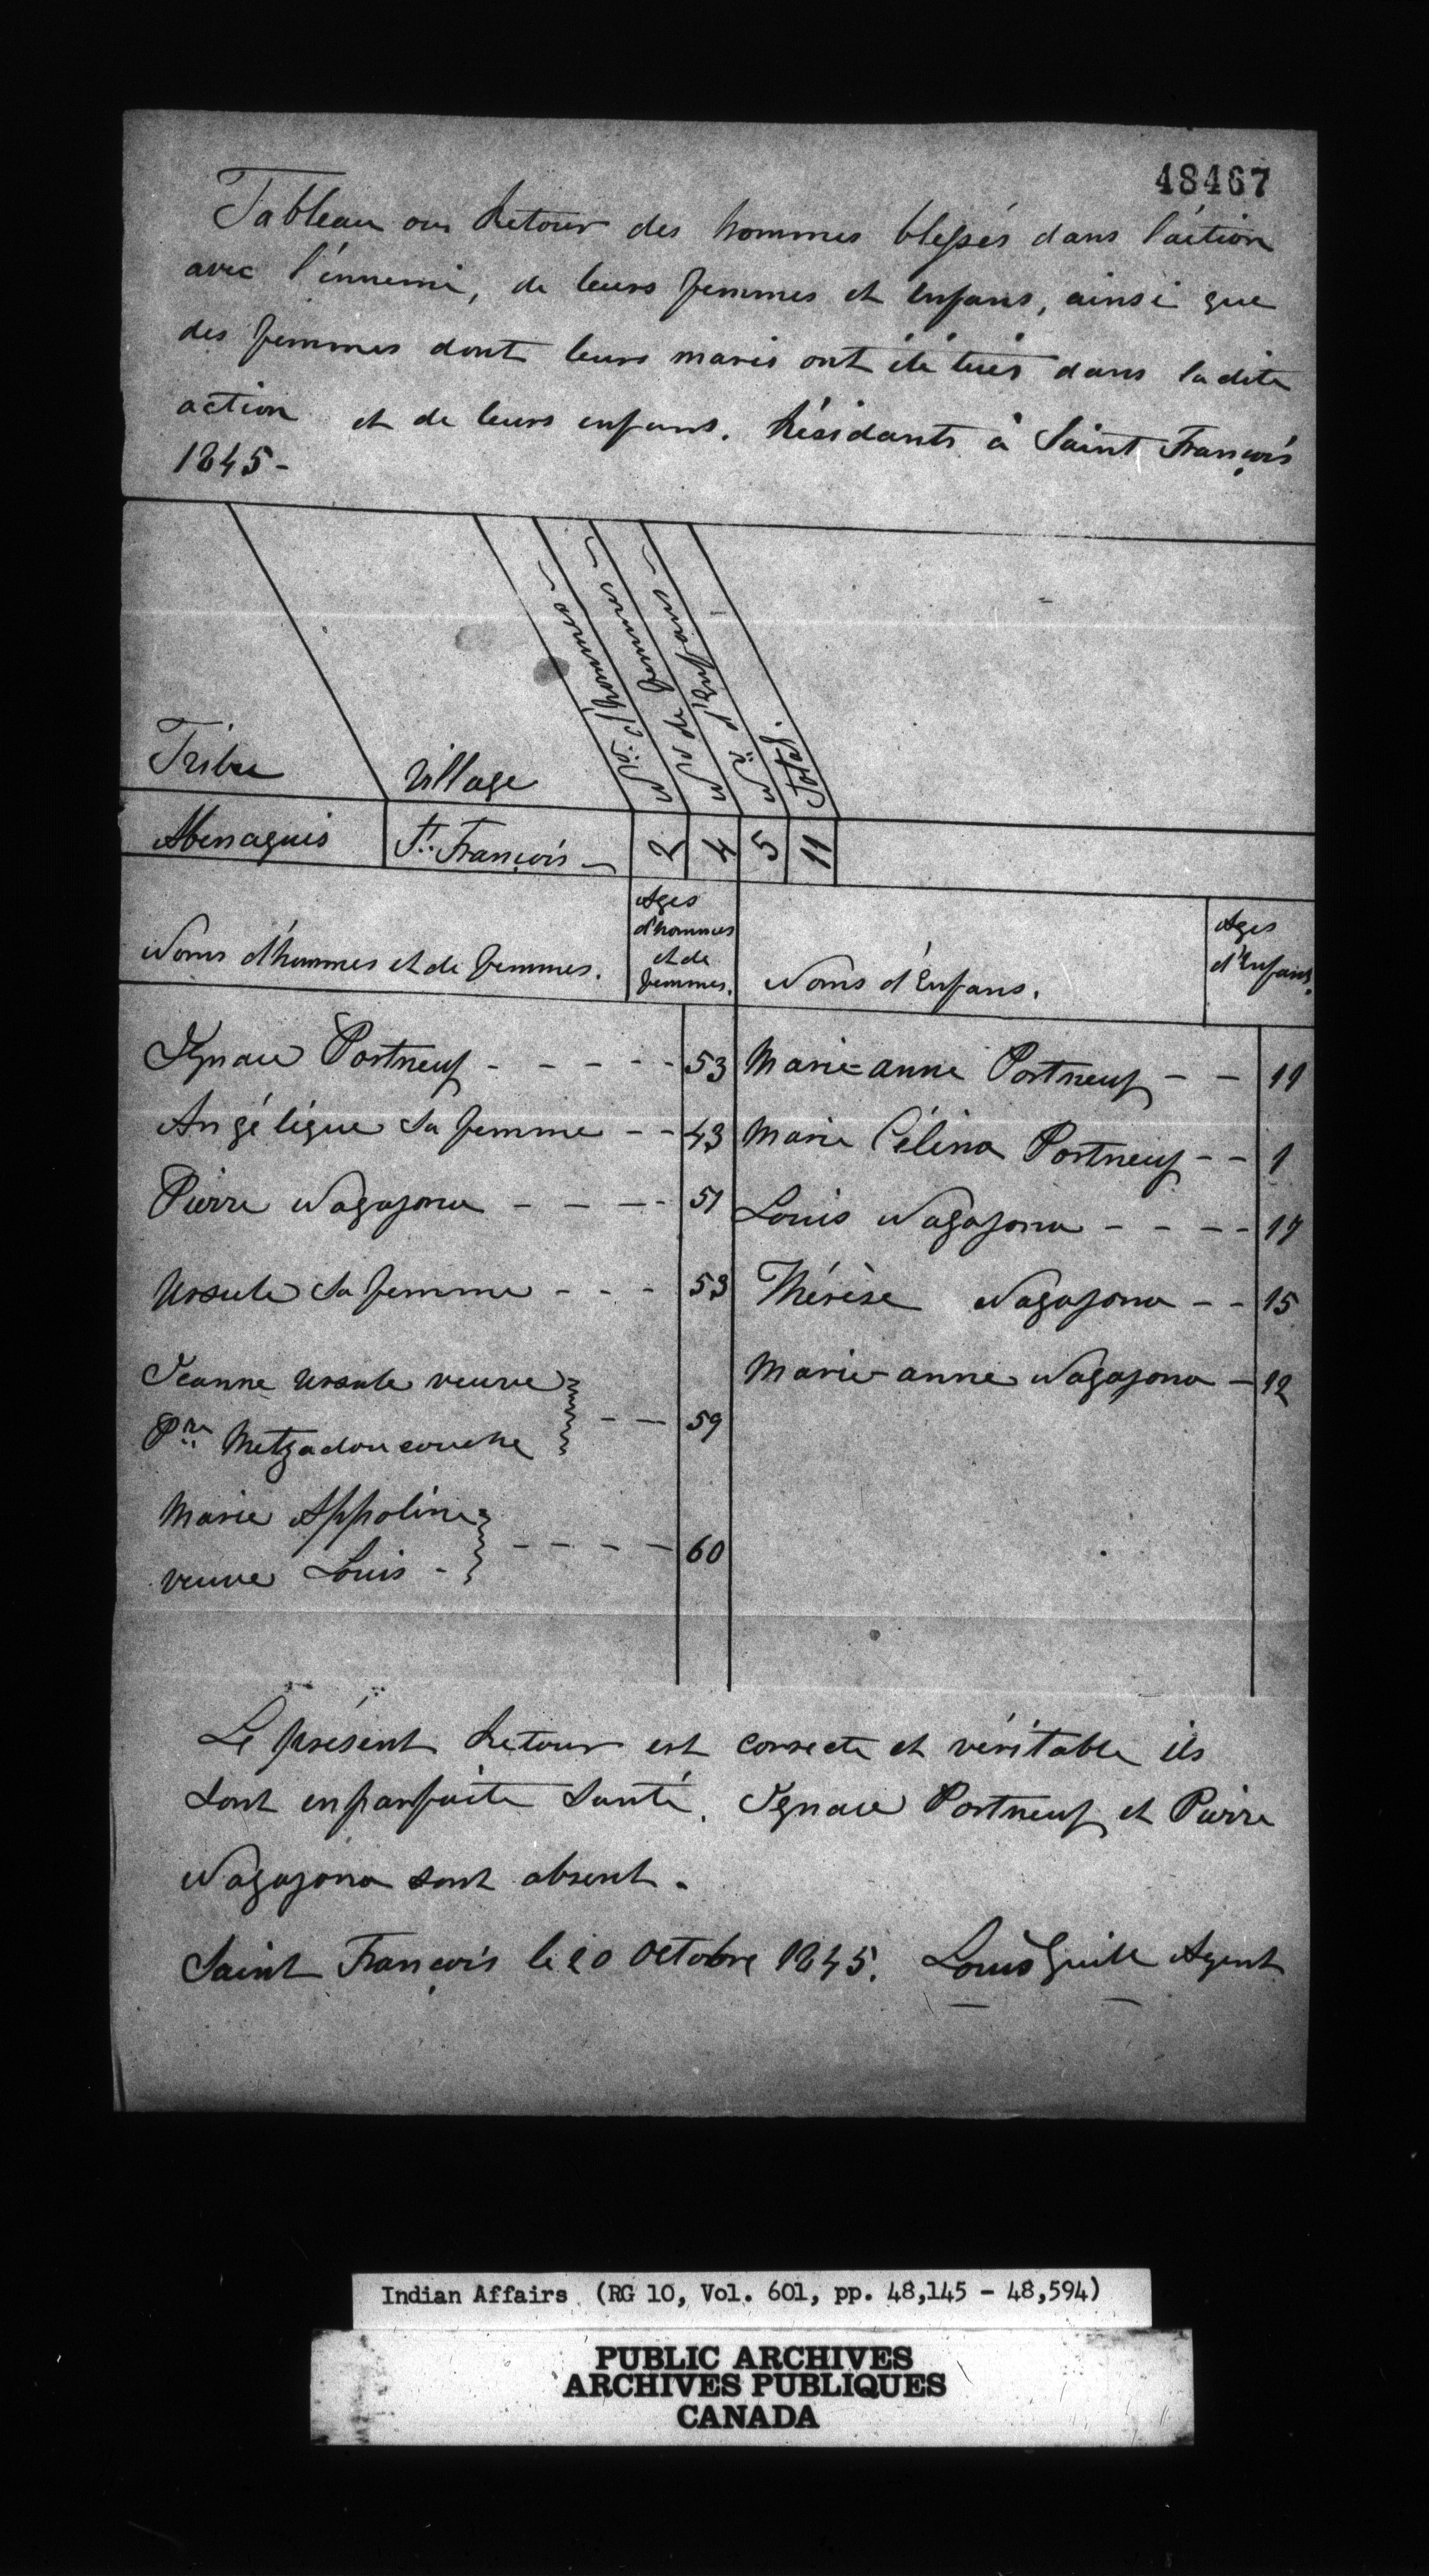 48467
Tableau ou Retour des hommes blessés dans l'action
avec l'énnemi, de leurs femmes et Enfans, ainsi que
des femmes dont leurs maris ont été tués dans la dite
action et de leurs enfans. Résidants à Saint François
1845-
Tribu
Village
No. d'hommes
No de femmes
No. d'Enfans
Total.
Abenaquis St. François 2 4 5 11
Noms d'hommes et de femmes.
Ages d'hommes et de femmes.
Noms d'Enfans.
Ages d'Enfans.
Ignace Portneuf - - - - - 53 Marie-anne Portneuf - - 11
Angélique Sa femme - - 43 Marie Célina Portneuf - - 1
Pierre Nagazoua - - - - 51 Louis Nagazoua - - - - 17
Ursule Sa femme - - - 53 Thérèse Nagazoua - - 15
Jeanne Ursule veuve Marie-anne Nagazoua - 12
Pre Metzadoucouche - - 59
Marie Appoline
veuve Louis - - - - - 60
Le présent Retour est correcte et véritable ils
sont en parfaite Santé. Ignace Portneuf et Pierre
Nagazoua sont absent.
Saint François le 20 Octobre 1845. Louis Guill Agent
Indian Affairs (RG 10, Vol. 601, pp. 48,145 - 48,594)
PUBLIC ARCHIVES
ARCHIVES PUBLIQUES
CANADA